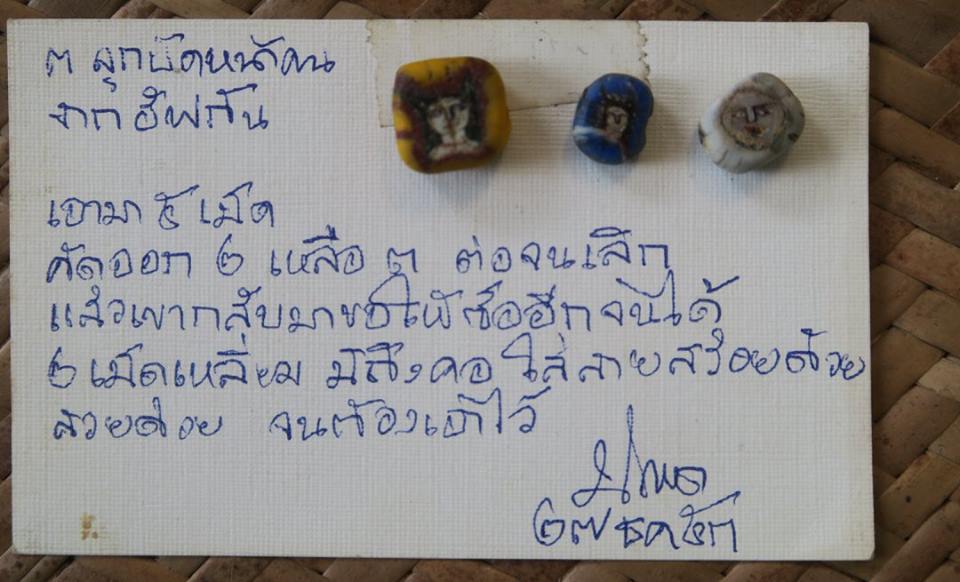 ๓ ลูกปัดหน้าคน
จาก อัฟกัน
เอามา ๕ เม็ด
คัดออก ๒ เหลือ ๓ ต่อจนเลิก
แล้วเขากลับมาขอให้ซื้ออีกจนได้
๒ เม็ดเหลี่ยม มีถึงคอ ใส่สายสร้อยด้วย
สวยด้วย จนต้องเอาไว้
๒๗ ธค